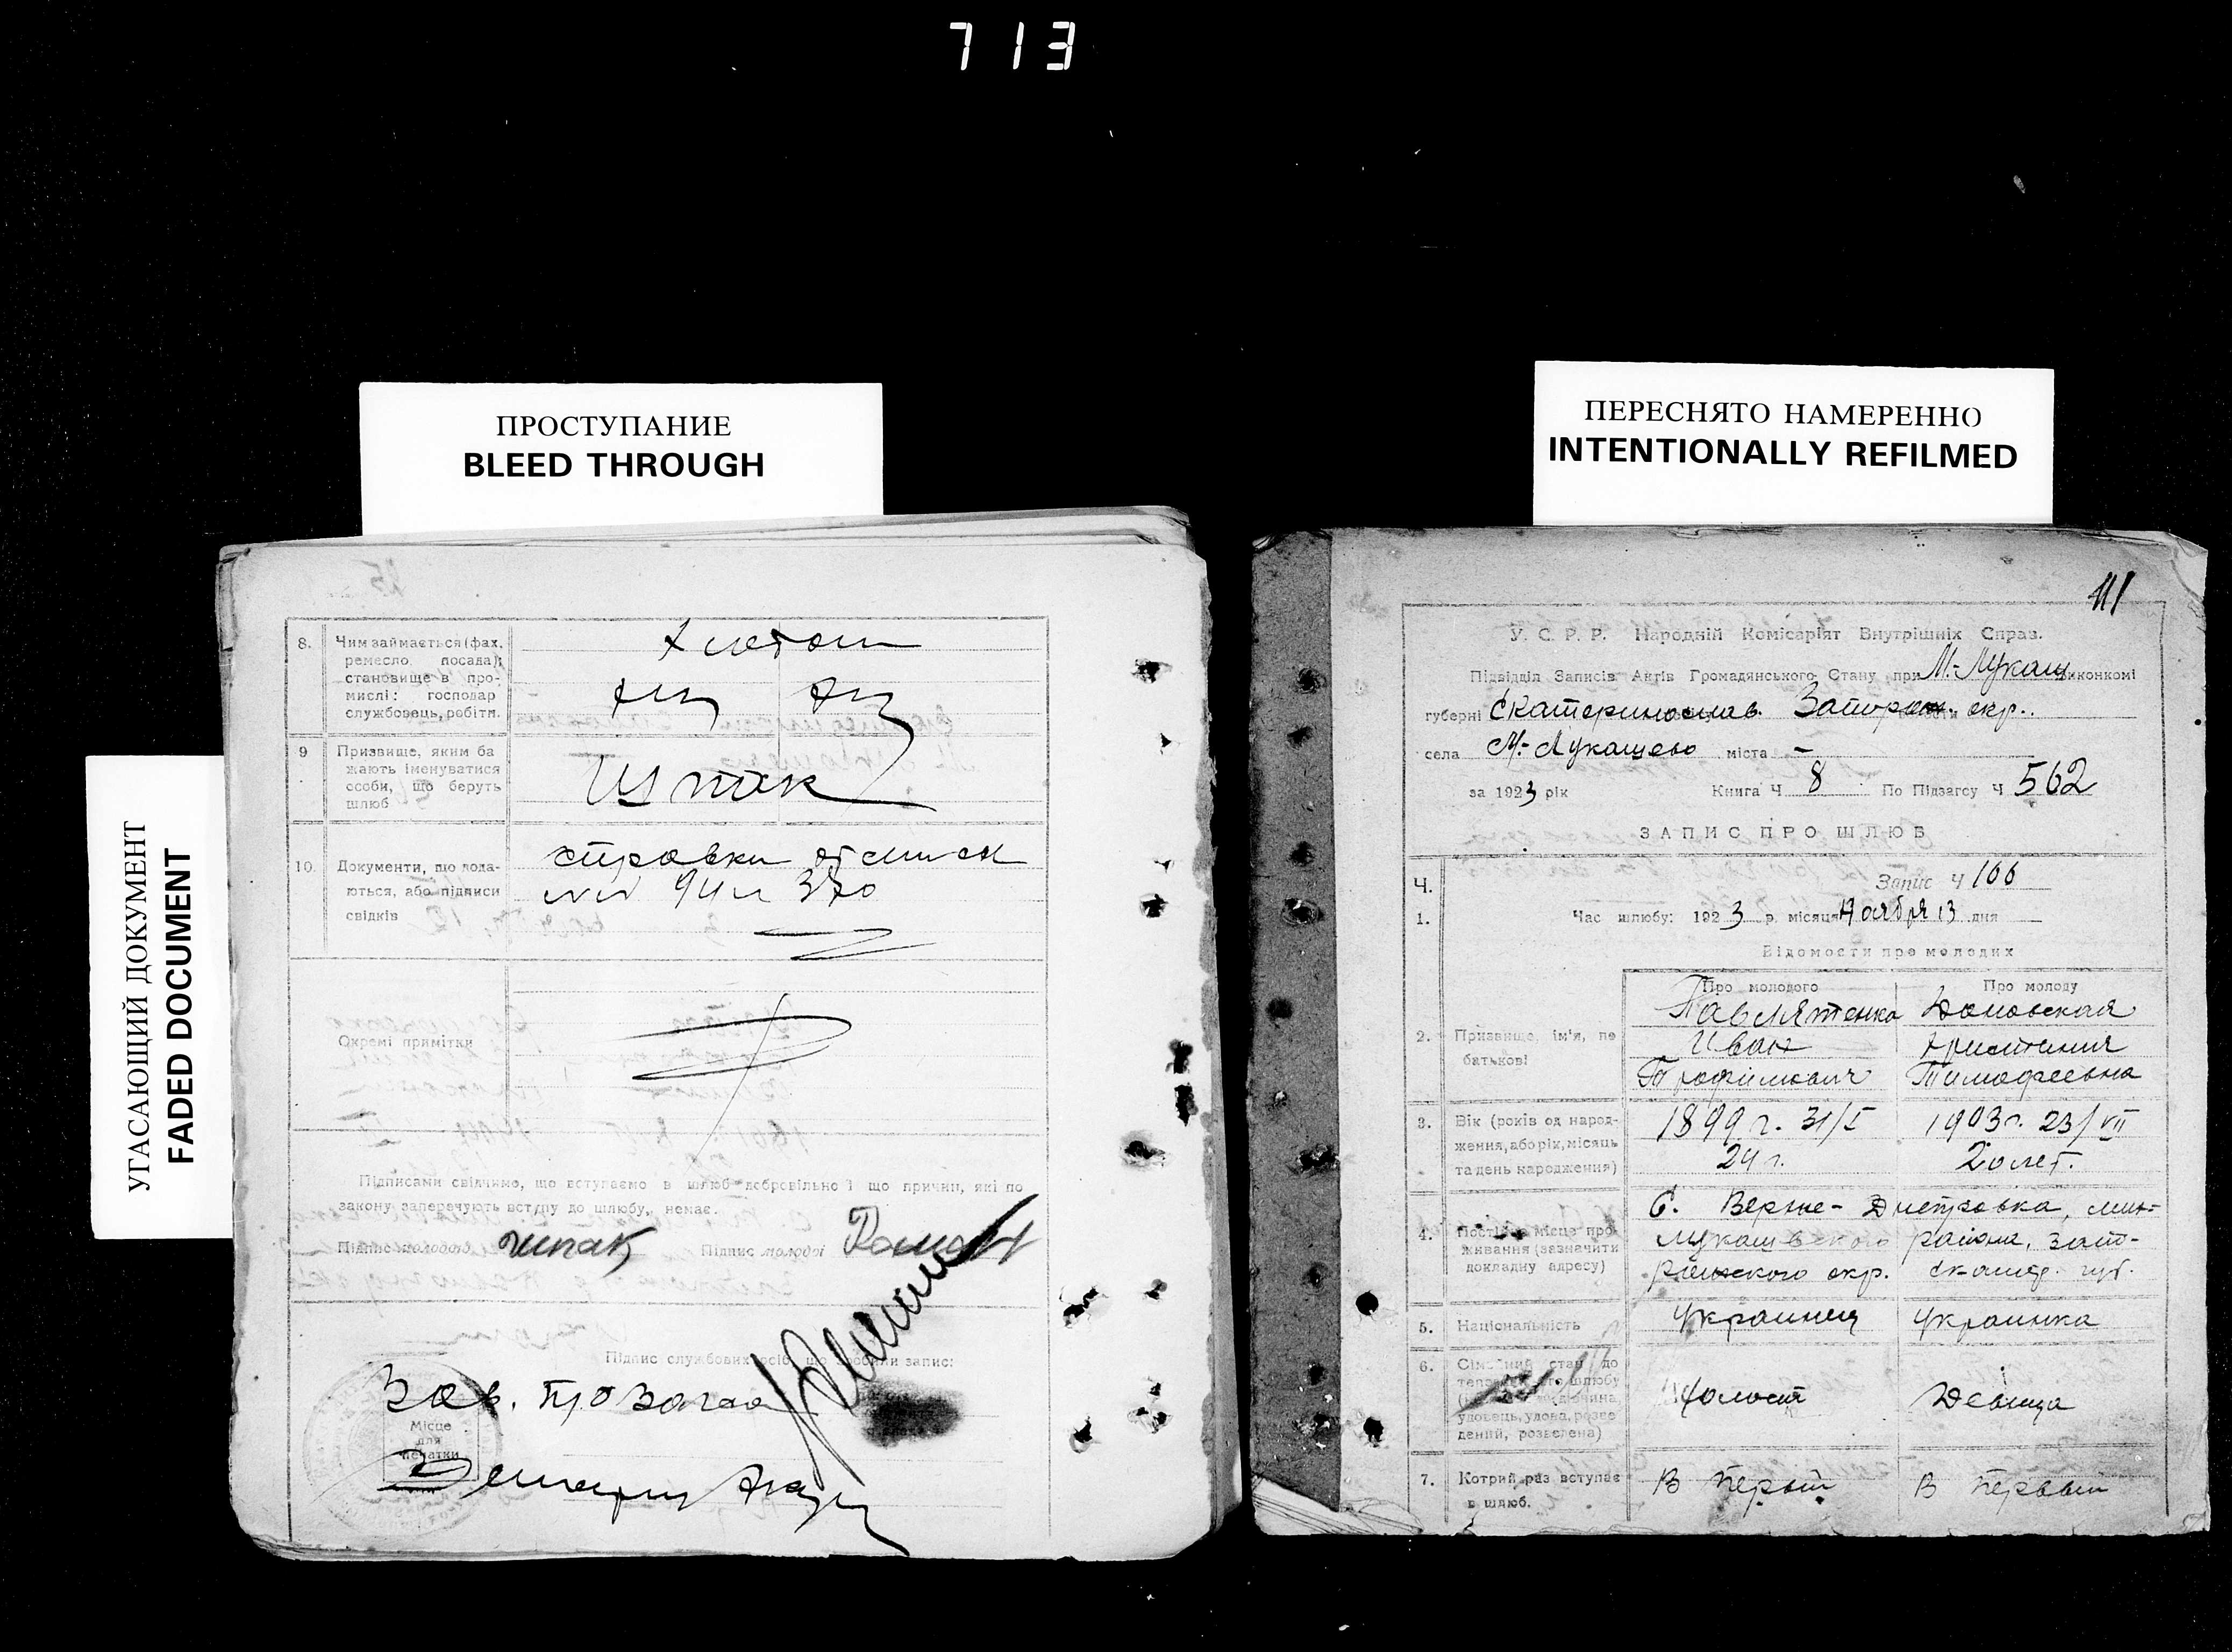 713
ПРОСТУПАНИЕ
BLEED THROUGH
ПЕРЕСНЯТО НАМЕРЕННО
INTENTIONALLY REFILMED
УГАСАЮЩИЙ ДОКУМЕНТ
FADED DOCUMENT
8. Чим займається (фах,
ремесло посада);
становище в про-
мислі: господар
службовець, робітн.
9 Призвище, яким ба
жають іменуватися
особи, що беруть
шлюб
Шпак
10. Документи, що пода-
ються, або підписи
свідків
справки
370
Окремі примітки
Підписами свідчимо, що вступаємо в шлюб добровільно і що причин, які по
закону заперечують вступу до шлюбу, немає.
Підпис молодого Шпак Підпис молодої
Підпис службових осіб, що зробили запис:
Зав.
Місце
для
печатки
111
У. С. Р. Р. Народній Комісаріят Внутрішніх Справ.
Підвідділ Записів Актів Громадянського Стану при М.-Лукаш виконкомі
губерні Екатеринослав. Запорож. окр.
села М.-Лукашево міста –
за 1923 рік Книга Ч 8 По Підзагсу Ч 562
ЗАПИС ПРО ШЛЮБ
Ч. Запис Ч 166
1. Час шлюбу: 1923 р. місяця Ноября 13 дня
Відомости про молодих
Про молодого Про молоду
2. Призвище, ім'я, по
батькові
Павлятенко
Иван Христиния
Трофимович Тимофеевна
3. Вік (років од народ-
ження, або рік, місяць
та день народження)
1899 г. 31/I 1903 г. 23/VII
24 г. 20 лет.
4. Постійне місце про-
живання (зазначити
докладну адресу)
С. Верхне-Днепровка, мих-
лукашевского района, Запо-
рожского окр. Екатер. губ.
5. Національність Украинец Украинка
6. Сімейний стан до
теперішнього шлюбу
удовець, удова, розве
дений, розведена)
Холост Девица
7. Котрий раз вступає
в шлюб.
В Первый В Первый